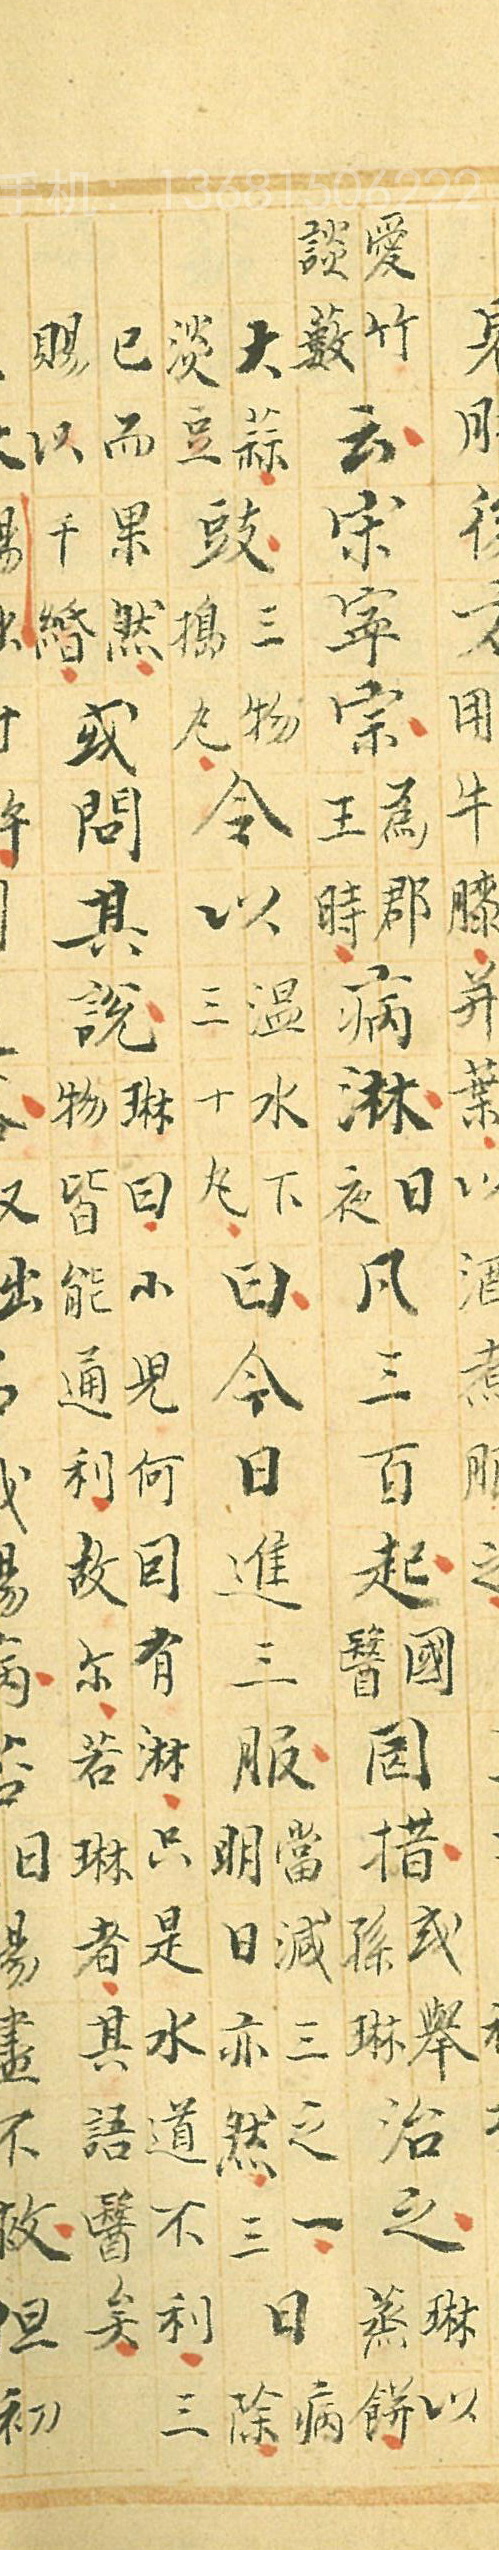 用牛膝并葉以酒煮服之
愛竹談藪云宋寧宗為郡王時病淋日夜凡三百起國醫罔措或舉孫琳治之琳以蒸餅
大蒜淡豆豉三物搗丸令以温水下三十丸曰今日進三服當減三之一明日亦然三日病除
已而果然賜以千緡或問其說琳曰小兒何因有淋只是水道不利三物皆能通利故尔若琳者其語醫矣
手机：13681506222